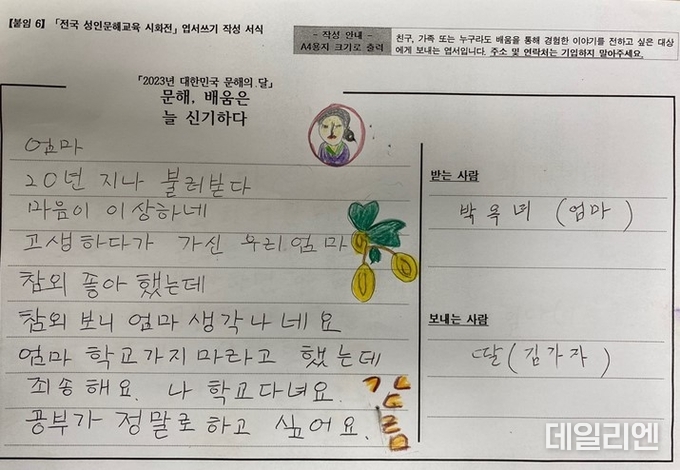 【붙임 6】「전국 성인문해교육 시화전」 엽서쓰기 작성 서식
- 작성 안내 -
A4용지 크기로 출력
친구, 가족 또는 누구라도 배움을 통해 경험한 이야기를 전하고 싶은 대상
에게 보내는 엽서입니다. 주소 및 연락처는 기입하지 말아주세요.
「2023년 대한민국 문해의 달」
문해, 배움은
늘 신기하다
엄마
20년 지나 불러받다
마음이 이상하네
고생하다가 가신 우리엄마
참외 좋아 했는데
참외 보니 엄마 생각나네요
엄마 학교가지마라고 했는데
죄송해요. 나 학교다녀요.
공부가 정말로하고 싶어요.
받는 사람
박옥녀 (엄마)
보내는 사람
딸(김가자)
데일리엔